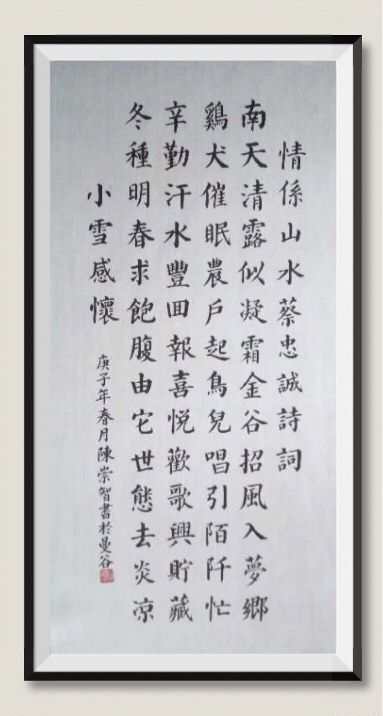 情係山水蔡忠誠詩詞
南天清露似凝霜金谷招風入夢鄉
鷄犬催眠農戶起鳥兒唱引陌阡忙
辛勤汗水豐田報喜悅歡歌興貯藏
冬種明春求飽腹由它世態去炎凉
小雪感懷
庚子年春月陳崇智書於曼谷